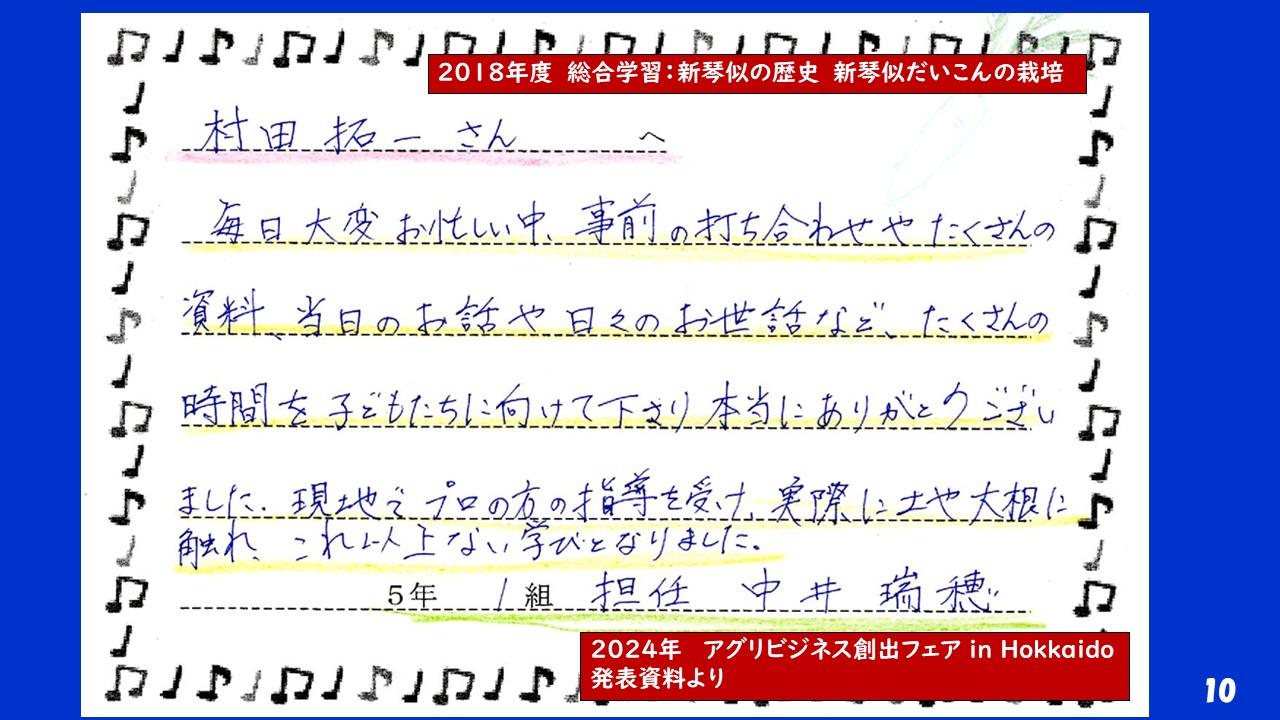 2018年度 総合学習：新琴似の歴史 新琴似だいこんの栽培
村田 拓一 さん へ
毎日大変お忙しい中、事前の打ち合わせやたくさんの
資料、当日のお話や日々のお世話など、たくさんの
時間を子どもたちに向けて下さり本当にありがとうござい
ました。現地でプロの方の指導を受け、実際に土や大根に
触れ、これ以上ない学びとなりました。
5年 1組 担任 中井 瑞穂
2024年 アグリビジネス創出フェア in Hokkaido
発表資料より
10